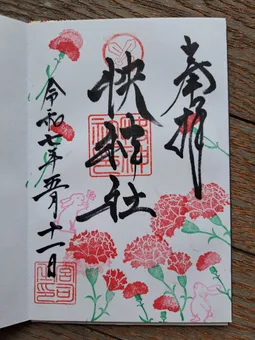 奉拝
快神社
令和七年五月十一日